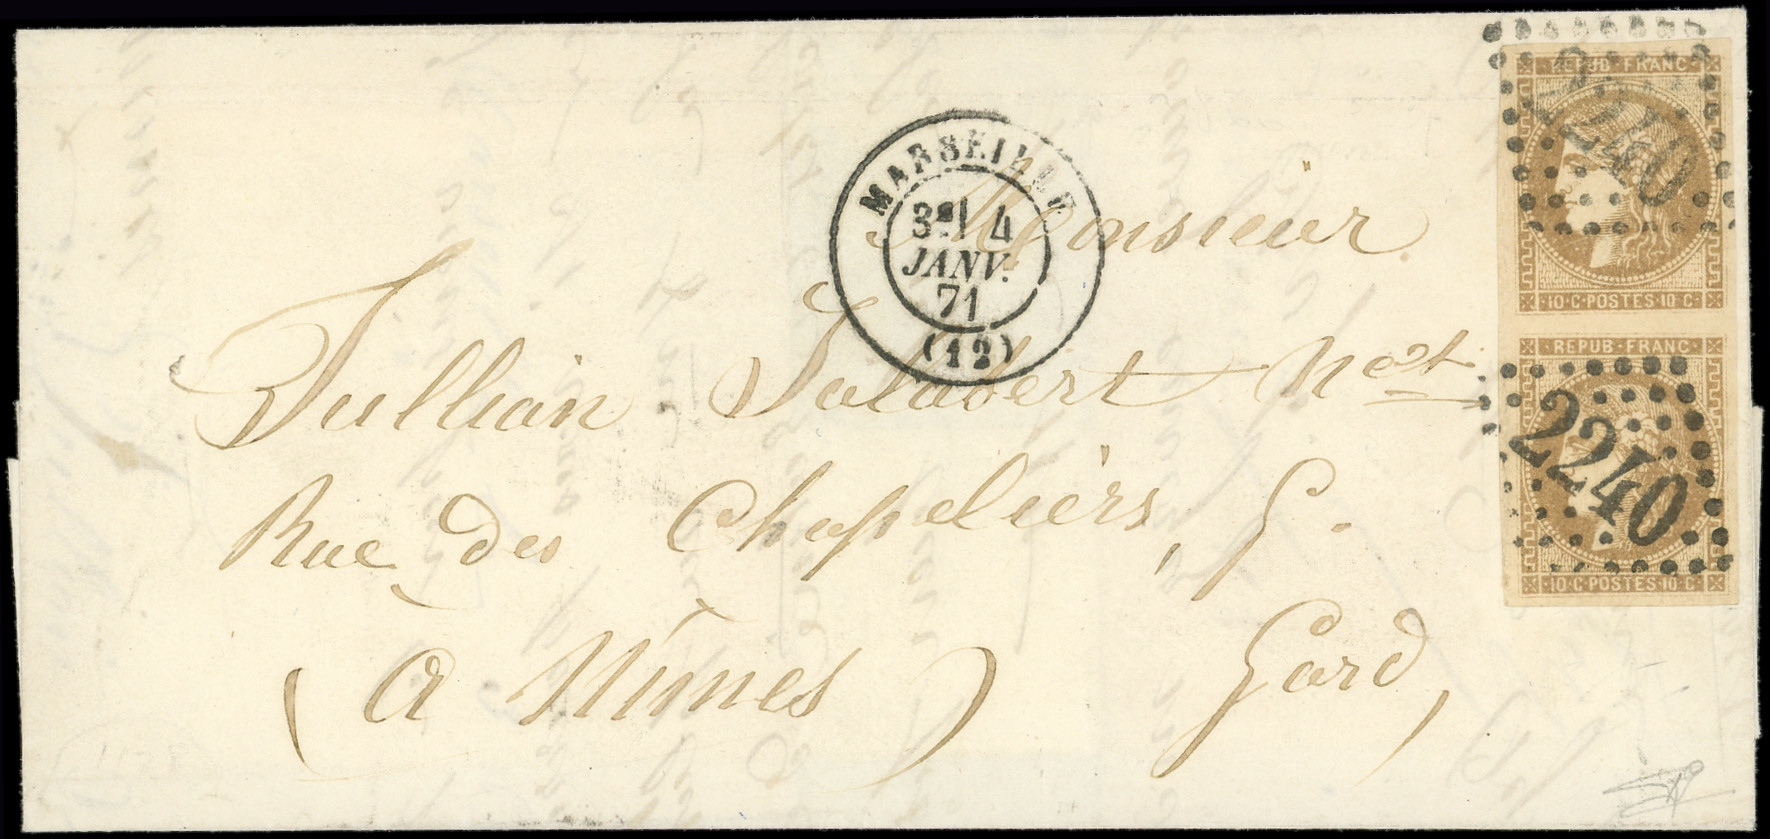 MARSEILLE
3E/ 4
JANV.
71
(12)
REPUB·FRANC
2240
·10·C·POSTES·10·C·
REPUB·FRANC·
2240
·10·C·POSTES·10·C·
Monsieur
Jullian Jalabert Nét
Rue des Chapeliers, G.
(a Nimes) Gard,